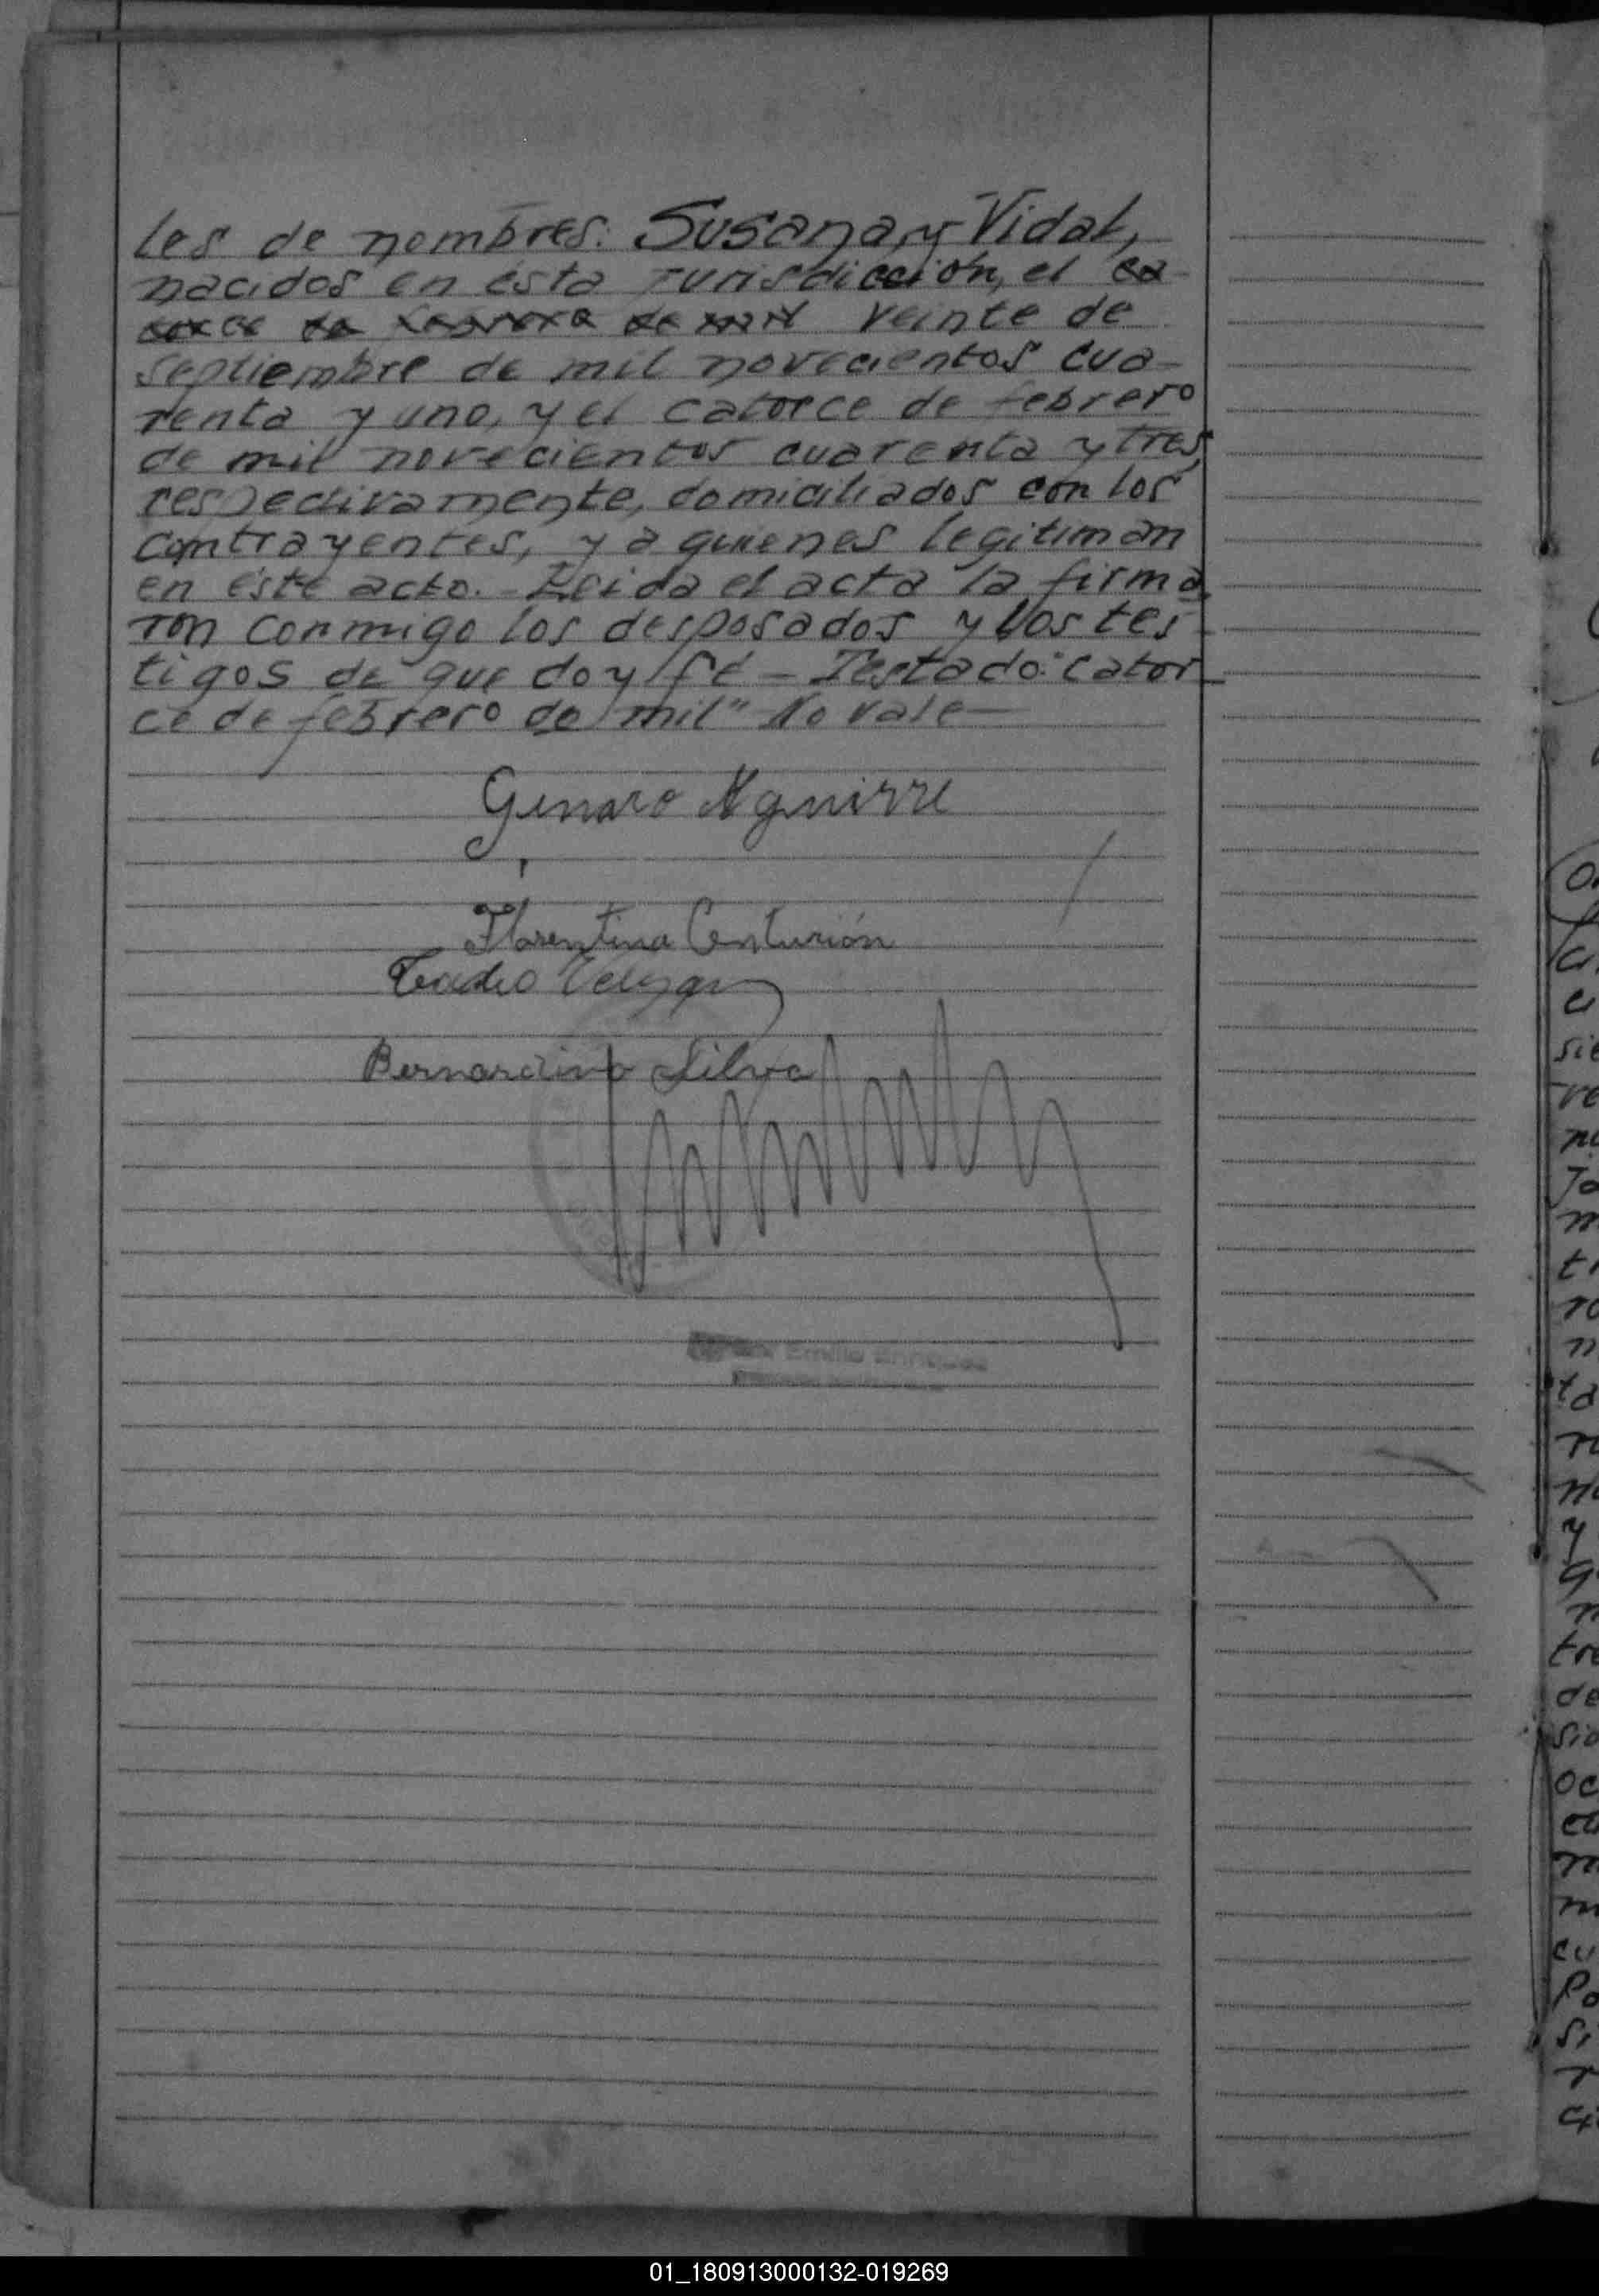 les de nombres: Susana y Vidal,
nacidos en ésta Jurisdicción, el ca-
torce de febrero de mil veinte de
septiembre de mil novecientos cua-
renta y uno, y el catorce de febrero
de mil novecientos cuarenta y tres,
respectivamente, domiciliados con los
contrayentes, y a quienes legitiman
en éste acto.- Leida el acta la firma
ron conmigo los desposados y los tes-
tigos de que doy fé - Testado: "cator
ce de febrero de mil" No vale-
Genaro Aguirre
Florentina Centurión
Bernardino Silva
Emilio Enriquez
01_180913000132-019269